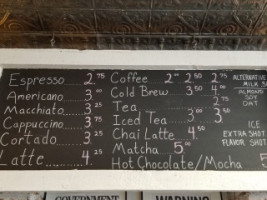 Espresso 2.75
Americano 3.00
Macchiato 3.25
Cappuccino 3.75
Cortado 3.25
Latte 4.25
Coffee 2.00 2.50 2.75
Cold Brew 3.50 4.00
Tea 2.75
Iced Tea 3.00 3.50
Chai Latte 4.50
Matcha 5.00
Hot Chocolate/Mocha 5
ALTERNATIVE
MILK
ALMOND
SOY
OAT
ICE
EXTRA SHOT
FLAVOR SHOT
GOVERNMENT
WARNING